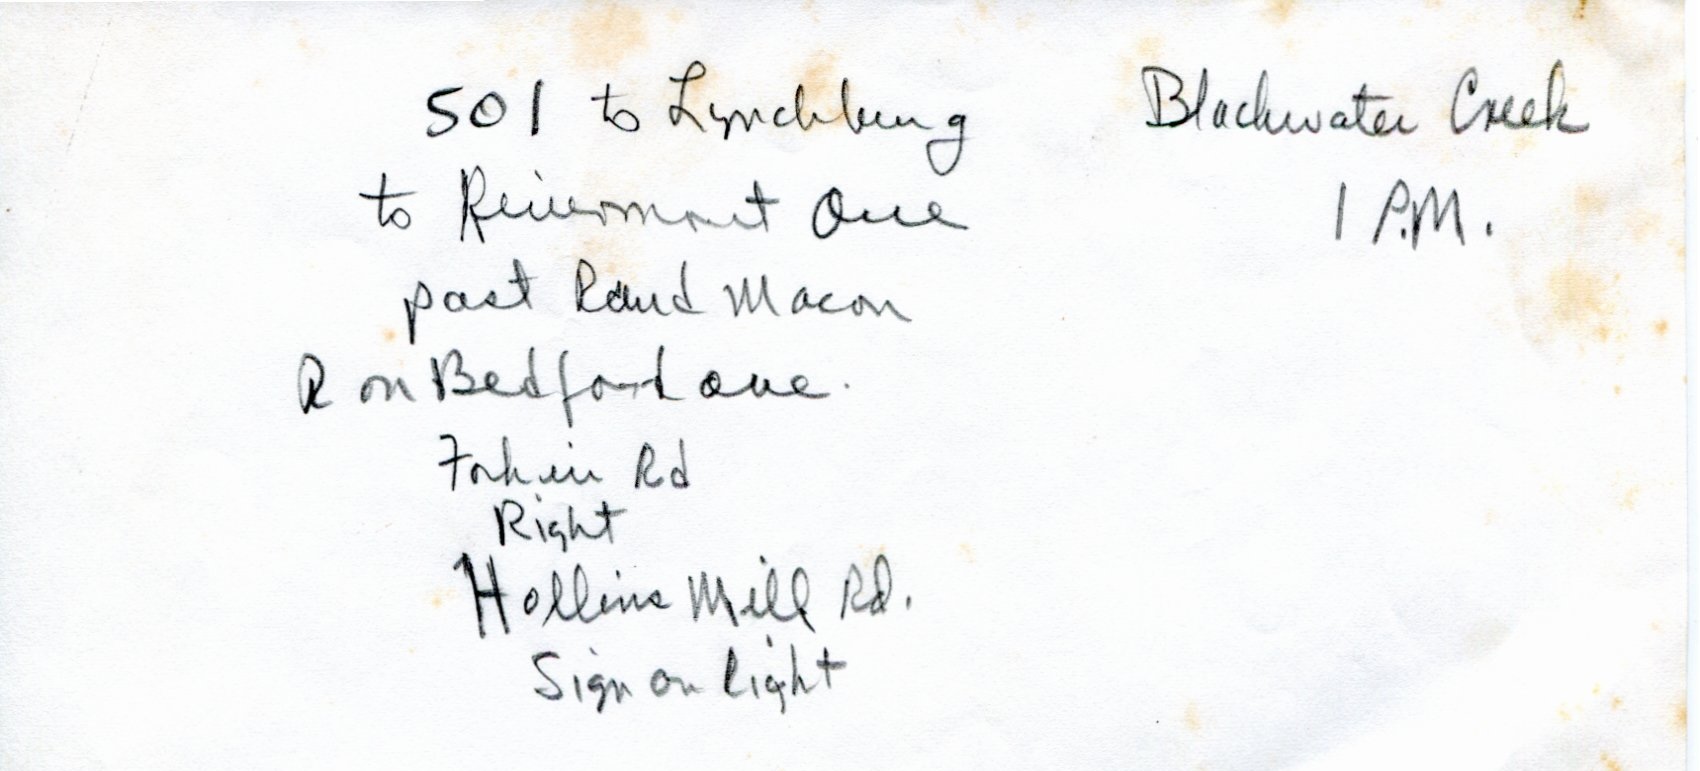 501 to Lynchburg
to Rivermont Ave
past Rand Macon
R on Bedford ave.
Fork in Rd
Right
Hollins Mill Rd.
Sign on Right
Blackwater Creek
1 P.M.